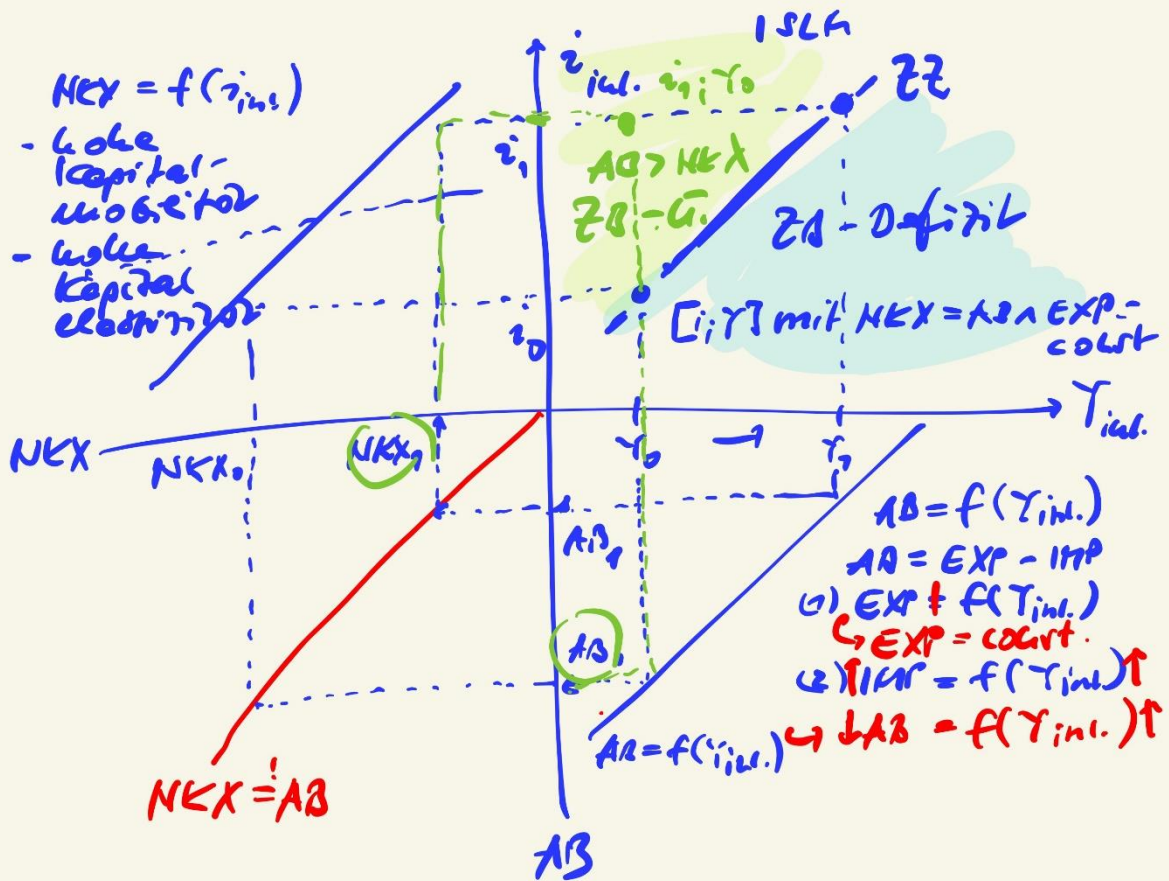 ISLM
NKX = f(i inl.)
- hohe
Kapital-
mobilität
- hohe
Kapital
elastizität
i inl.
i₁; Y₀
ZZ
i₁
AB > NKX
ZB - Ü.
ZB - Defizit
i₀
[i; Y] mit NKX = AB ∧ EXP-
const
NKX
NKX₀
NKX₁
Y₀
→
Y₁
Y inl.
AB₁
AB₀
AB = f(Y inl.)
AB = EXP - IMP
(1) EXP ≠ f(Y inl.)
↳ EXP = const.
(2) ↑IMP = f(Y inl.)↑
↳ ↓AB = f(Y inl.)↑
AB = f(Y inl.)
NKX =! AB
AB